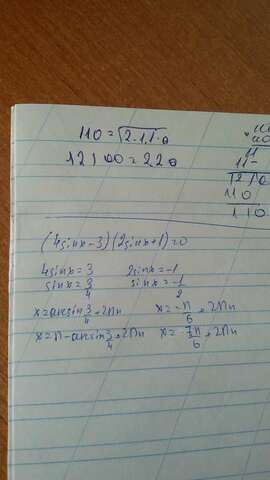 110 = √2·11·a
12100 = 22a
11
110
110
(4sinx-3)(2sinx+1)=0
4sinx=3 2sinx=-1
sinx=3/4 sinx=-1/2
x=arcsin3/4+2πn x=-π/6+2πn
x=π-arcsin3/4+2πn x=7π/6+2πn